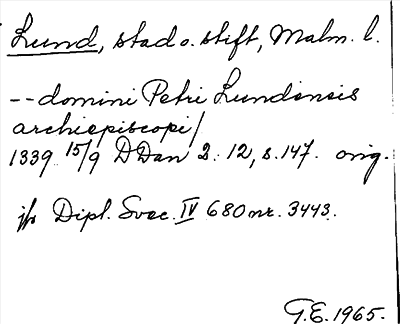 Lund, stad o. stift, Malm. l.
-- domini Petri Lundensis
archiepiscopi/
1339 15/9 DDan 2: 12, s. 147. orig.
jfr Dipl. Svec. IV 680 nr. 3443.
G.E. 1965.